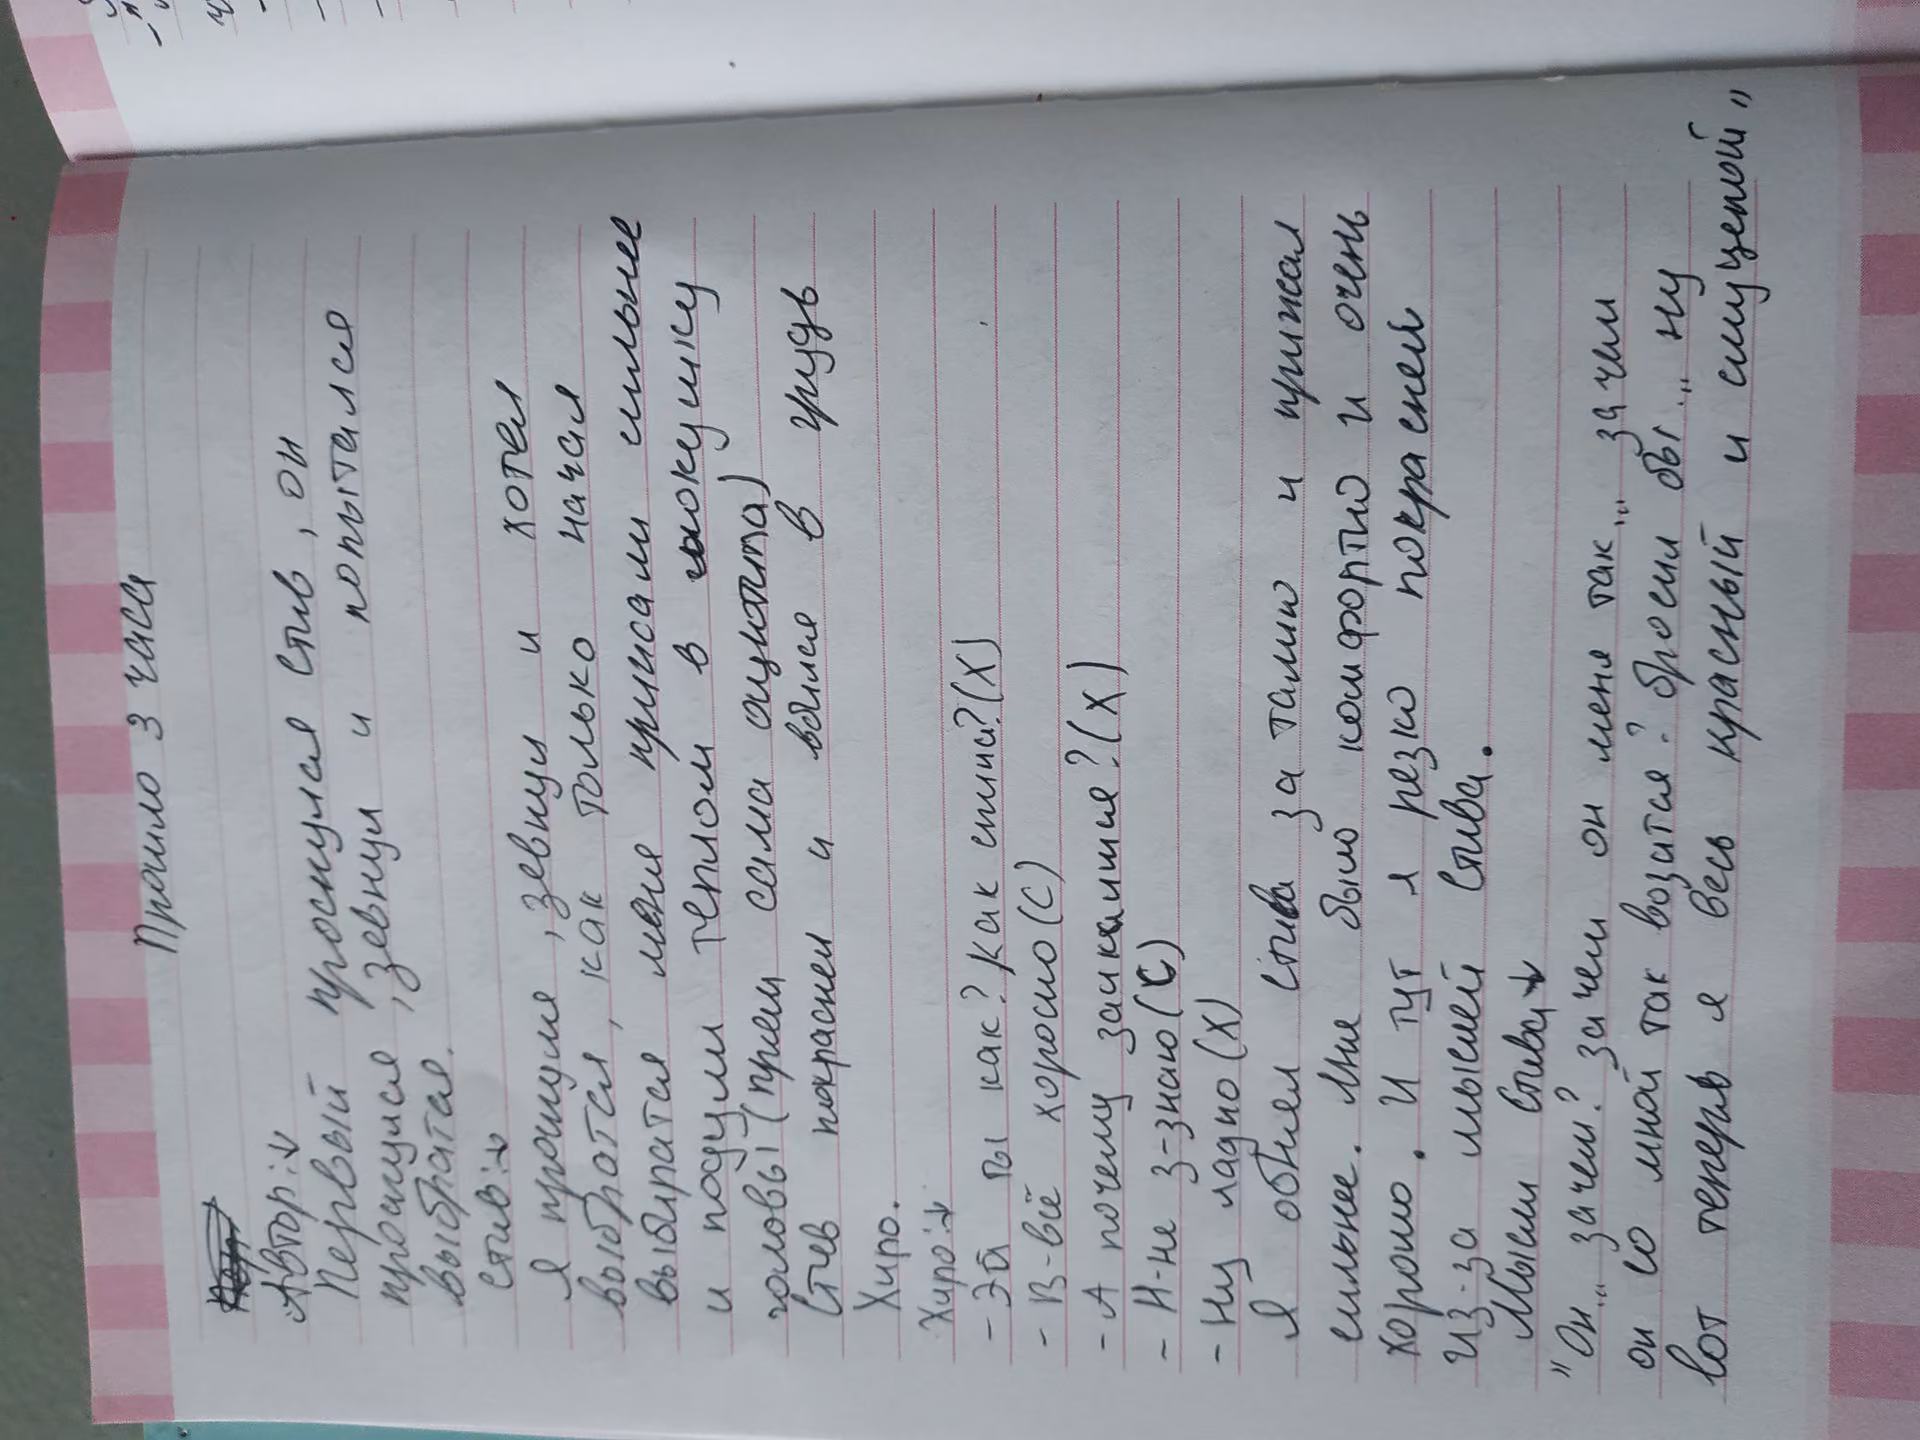 Прошло 3 часа
Автор:↓
Первый проснулся Стив, он
проснулся, зевнул и попытался
выбратся.
Стив:↓
Я проснулся, зевнул и хотел
выбратся, как только начал
выбиратся меня прижали сильнее
и подули теплом в макушку
головы (прям сама
Стив покраснел и вжился в грудь
Хиро.
Хиро:↓
- Эй ты как? Как спина? (Х)
- В-всё хорошо (С)
- А почему заикаишся? (Х)
- Н-не з-знаю (С)
- Ну ладно (Х)
Я обнял Стива за талию и прижал
сильнее. Мне было комфортно и очень
хорошо. И тут я резко покраснел
из-за мыслей Стива.
Мысли Стива↓
"Он... зачем? зачем он меня так... зачем
он со мной так возится? бросил бы... ну
вот теперь я весь красный и смущеный"